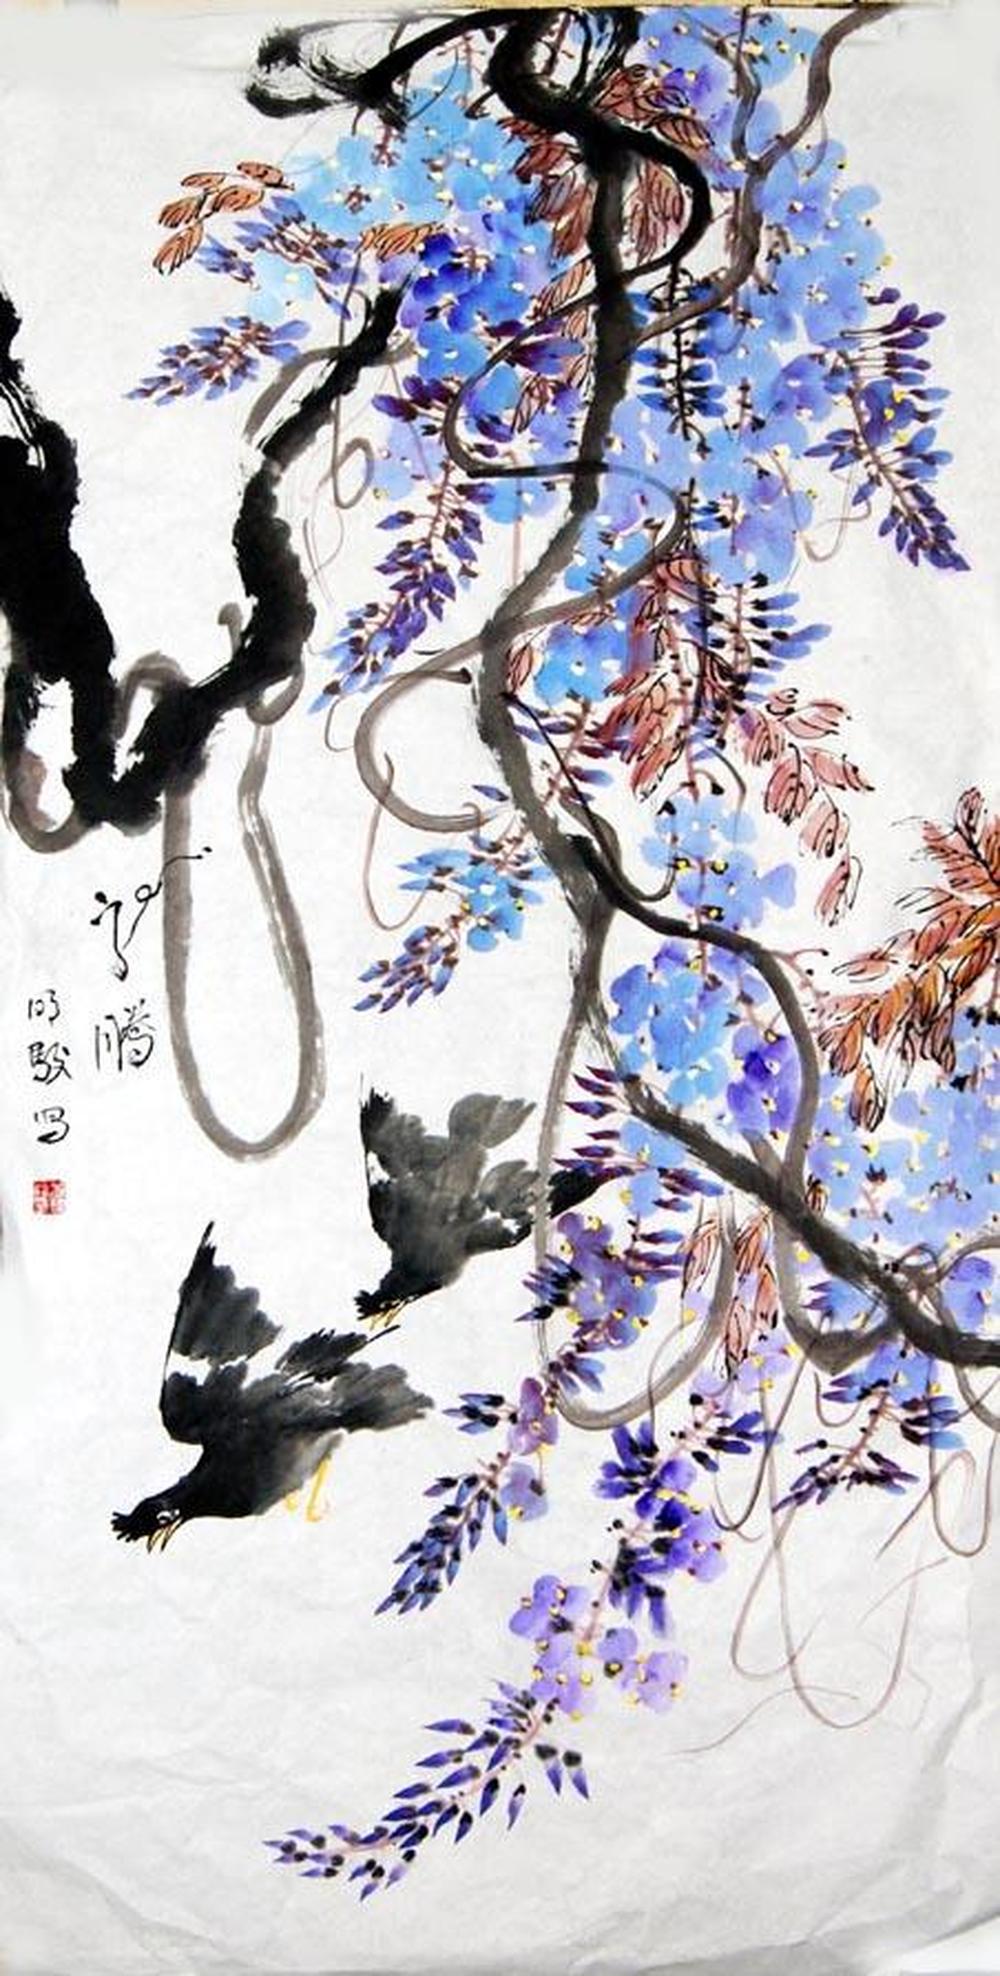 飞腾
明骏写